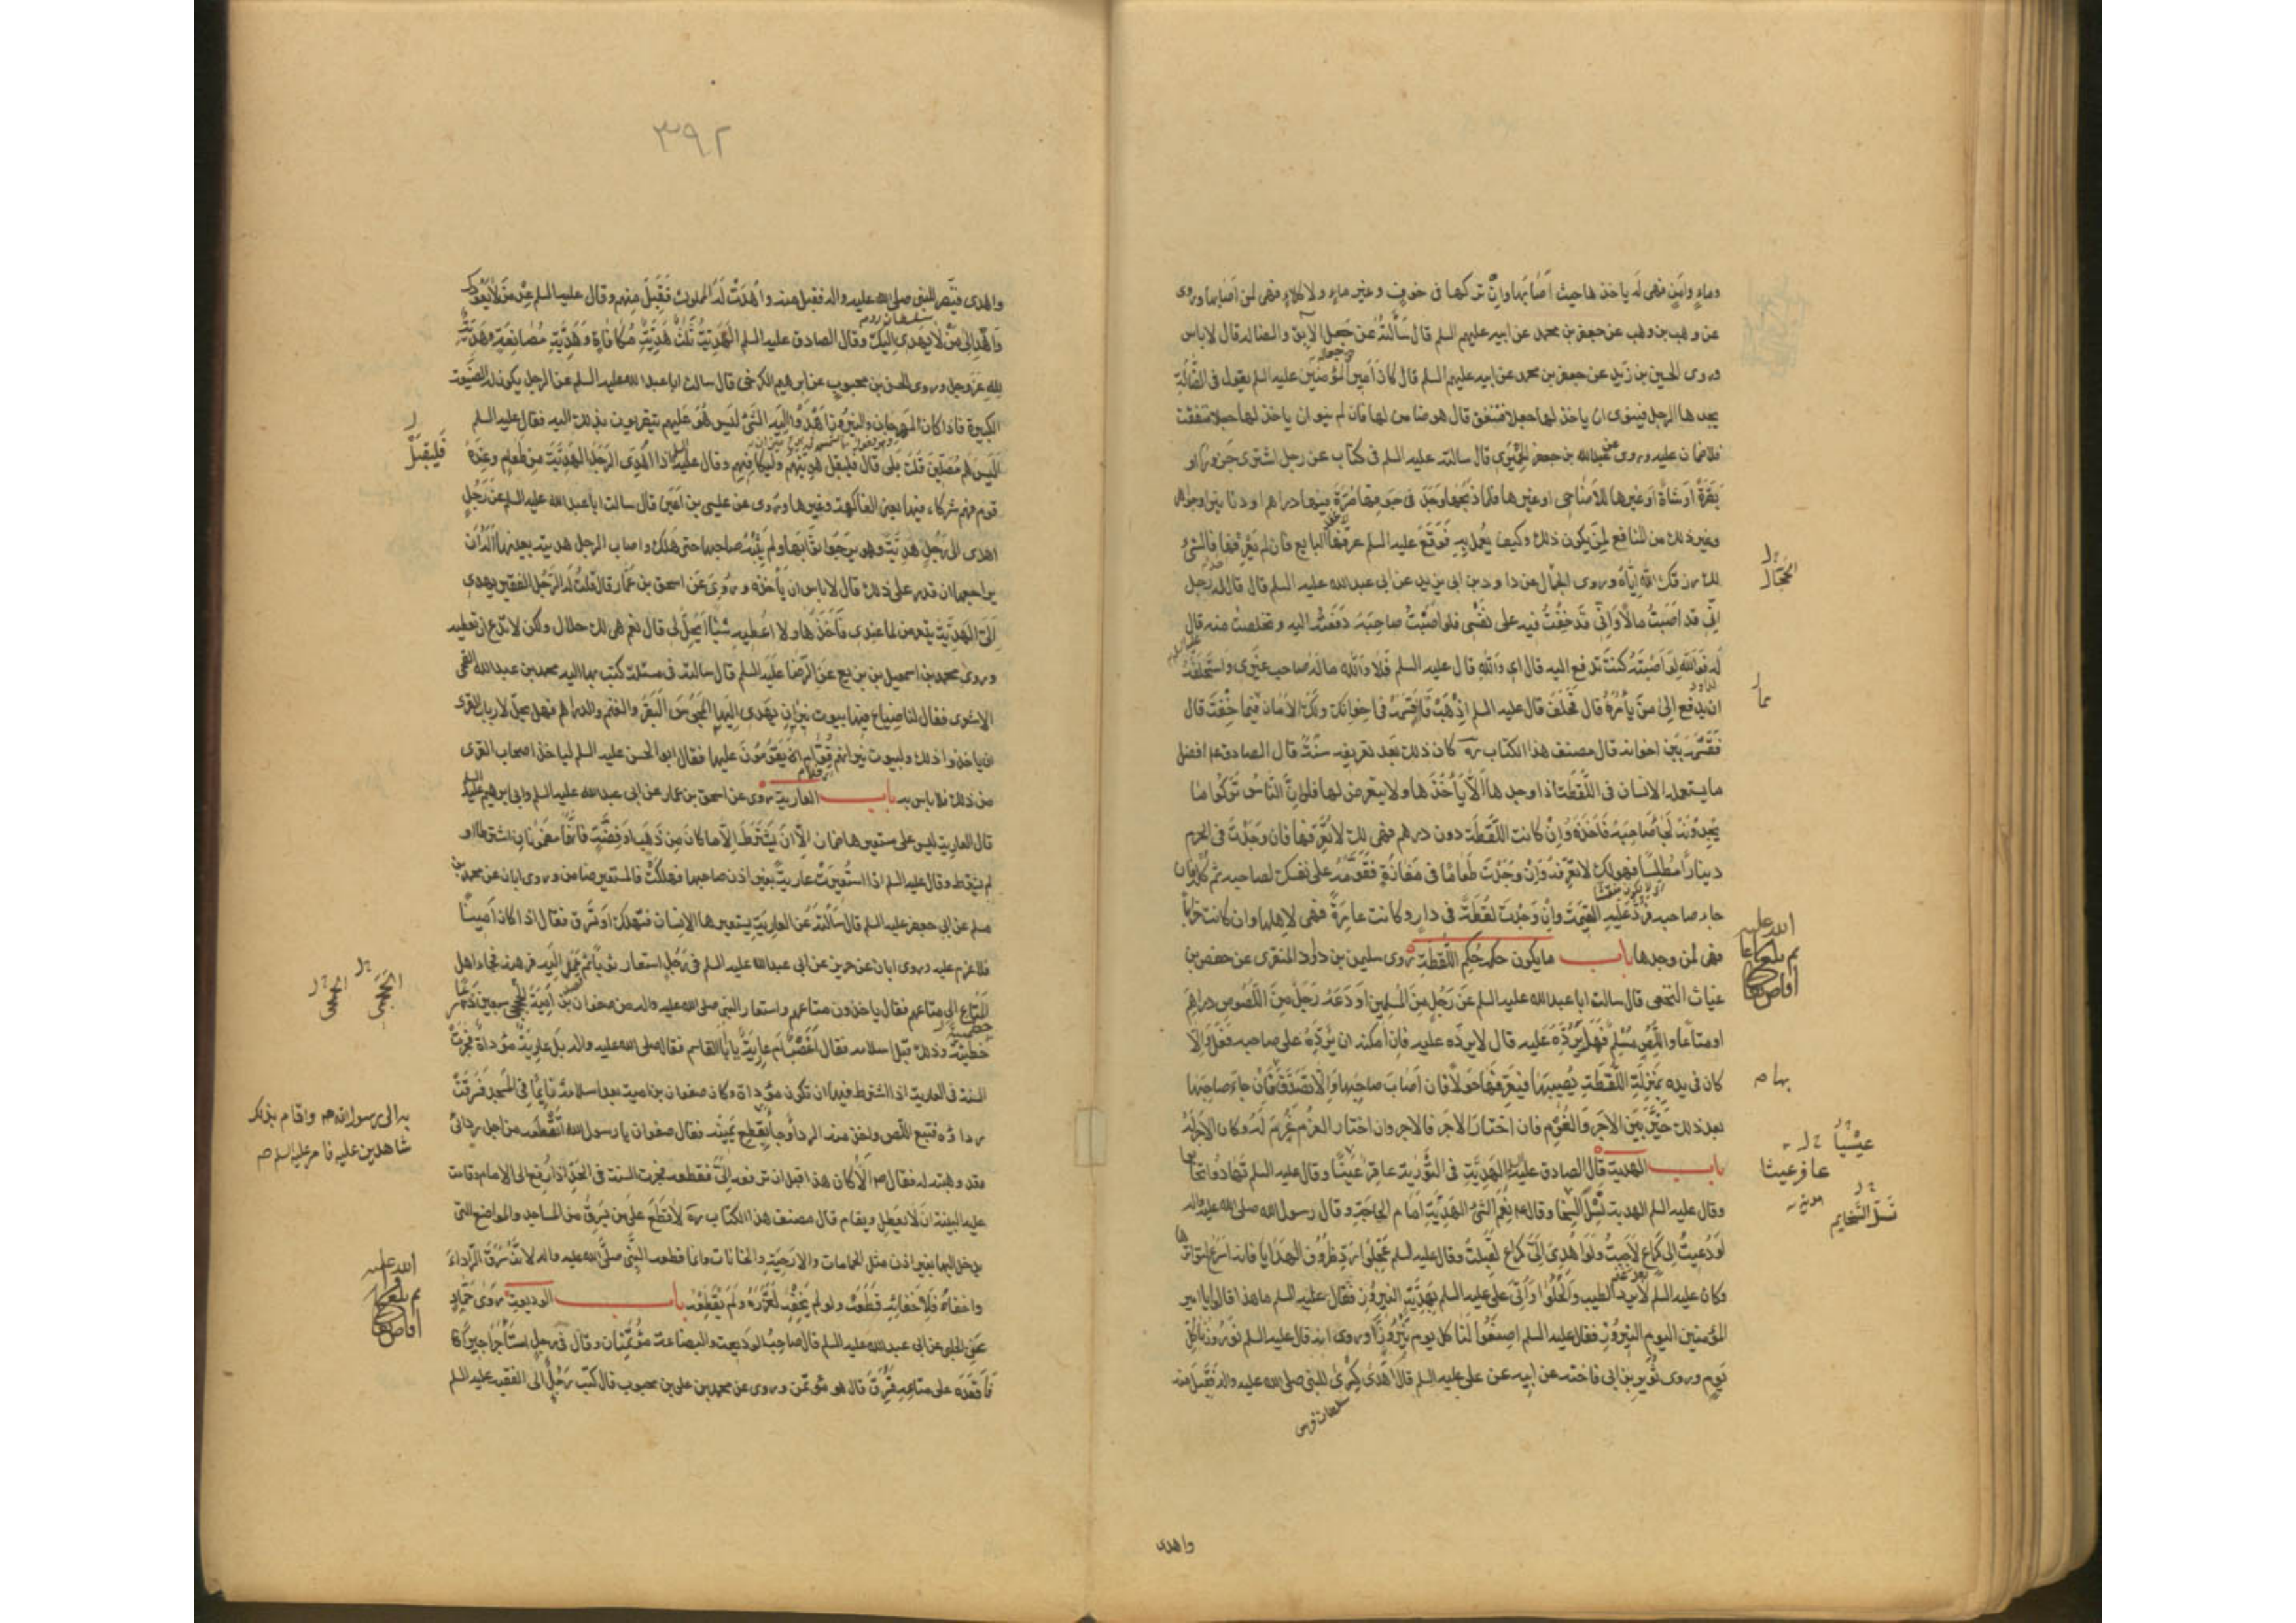 وماء وامن فهي له ياخذها حيث اصابها وان تركها فى خوف وعلى غير ماء ولا كلاء فهي لمن اصابها وروى
عن وهب بن وهب عن جعفر بن محمد عن ابيه عليهم السلم قال سألته عن جعل الابق والضالة قال لا باس
وروى الحسين بن زيد عن جعفر بن محمد عن ابيه عليهم السلم قال كان امير المؤمنين عليه السلم يقول فى الضالة
يجدها الرجل فينوى ان ياخذ لها جعلا فتنفق قال هو ضامن لها فان لم ينو ان ياخذ لها جعلا فنفقت
فلا ضمان عليه وروى عن عبدالله بن جعفر الحميرى قال سالته عليه السلم فى كتاب عن رجل اشترى جزورا او
بقرة او شاة او غيرها للاضاحى او غيرها فلما ذبحها وجد فى جوفها صرة فيها دراهم او دنانير او جواهر
وغير ذلك من المنافع لمن يكون ذلك وكيف يعمل به فوقع عليه السلم عرفها البايع فان لم يعرفها فالشئ
لك رزقك الله اياه وروى الحجال عن داود بن ابى يزيد عن ابى عبدالله عليه السلم قال قال له رجل
انى قد اصبت مالا وانى قد خفت فيه على نفسى فلو اصبت صاحبه دفعته اليه وتخلصت منه قال
له فوالله لو اصبته كنت تدفع اليه قال اى والله قال عليه السلم فلا والله ماله صاحب غيرى واستحلفه
ان يدفع الى من يأمره قال فحلف قال عليه السلم اذهب فاقسمه فى اخوانك ولك الامان فيما خفت قال
فقسمه بين اخوانه قال مصنف هذا الكتاب ره كان ذلك بعد تعريفه سنة قال الصادق ع افضل
ما يستعمله الانسان فى اللقطة اذا وجدها الا يأخذها ولا يتعرض لها فلو ان الناس تركوا ما
يجدونه لجاء صاحبه فاخذه وان كانت اللقطة دون درهم فهى لك لا تعرفها فان وجدت فى الحرم
دينارا مطلسا فهو لك لا تعرفه وان وجدت طعاما فى مفازة فقومه على نفسك لصاحبه ثم كله فان
جاء صاحبه فرد عليه القيمة وان وجدت لقطة فى دار وكانت عامرة فهى لاهلها وان كانت خرابا
فهى لمن وجدها باب ما يكون حكمه حكم اللقطة روى سليمن بن داود المنقرى عن حفص بن
غياث النخعى قال سالت ابا عبدالله عليه السلم عن رجل من المسلمين اودعه رجل من اللصوص دراهم
او متاعا واللص مسلم فهل يرده عليه قال لا يرده عليه فان امكنه ان يرده على صاحبه فعل والا
كان فى يده بمنزلة اللقطة يصيبها فيعرفها حولا فان اصاب صاحبها والا تصدق بها فان جاء صاحبها
بعد ذلك خير بين الاجر والغرم فان اختار الاجر فالاجر وان اختار الغرم غرم له وكان الاجر له
باب الهدية قال الصادق عليه السلم الهدية فى التورية عافر عينا وقال عليه السلم تهادوا تحابوا
وقال عليه السلم الهدية تسل السخايم وقال ع نعم الشئ الهدية امام الحاجة وقال رسول الله صلى الله عليه واله
لو دعيت الى كراع لاجبت ولو اهدى الى كراع لقبلت وقال عليه السلم عجلوا رد ظروف الهدايا فانه اسرع لتواترها
وكان عليه السلم لا يرد الطيب والحلوا واتى على عليه السلم بهدية النيروز فقال عليه السلم ما هذا قالوا يا امير
المؤمنين اليوم النيروز فقال عليه السلم اصنعوا لنا كل يوم نيروزا وروى انه قال عليه السلم نوروزنا كل
يوم وروى ثوير بن ابى فاخته عن ابيه عن على عليه السلم قال اهدى كسرى للنبى صلى الله عليه واله فقبل منه
الحجال
عافر عينا
تسل السخايم
واهدى
٣٩٢
واهدى قيصر للنبى صلى الله عليه واله فقبل منه واهدت له الملوك فقبل منهم وقال عليه السلم عد من لا يعودك
واهد الى من لا يهدى اليك وقال الصادق عليه السلم الهدية ثلث هدية مكافاة وهدية مصانعة وهدية
لله عز وجل وروى الحسن بن محبوب عن ابرهيم الكرخى قال سالت ابا عبدالله عليه السلم عن الرجل يكون له الضيعة
الكبيرة فاذا كان المهرجان والنيروز اهدوا اليه الشئ ليس هو عليهم يتقربون بذلك اليه فقال عليه السلم
اليس هم مصلين قلت بلى قال فليقبل هديتهم وليكافهم وقال عليه السلم اذا اهدى الرجل الهدية من طعام وعنده
قوم فهم شركاء فيها يعنى الفاكهة وغيرها وروى عن عيسى بن اعين قال سالت ابا عبدالله عليه السلم عن رجل
اهدى الى رجل هدية وهو يرجو ثوابها ولم يثبه صاحبها حتى هلك واصاب الرجل هديته بعينها اله ان
يراجعها ان قدر على ذلك قال لا باس ان ياخذه وروى عن اسحق بن عمار قال قلت له الرجل الفقير يهدى
الى الهدية يتعرض لما عندى فآخذها ولا اعطيه شيئا ايحل لى قال نعم هى لك حلال ولكن لا تدع ان تعطيه
وروى محمد بن اسمعيل بن بزيع عن الرضا عليه السلم قال سالته فى مسئلة كتب بها اليه محمد بن عبدالله القمى
الاشعرى فقال لنا ضياع فيها بيوت نيران يهدى اليها المجوس البقر والغنم والدراهم فهل يحل لارباب القرى
ان ياخذوا ذلك ولبيوت نيرانهم قوام يقومون عليها فقال ابو الحسن عليه السلم لياخذ اصحاب القرى
من ذلك فلا باس به باب العارية روى عن اسحق بن عمار عن ابى عبدالله عليه السلم وابى ابرهيم عليه السلم
قال العارية ليس على مستعيرها ضمان الا ان يشترط الا ما كان من ذهب او فضة فانهما مضمونان اشترطا او
لم يشترط وقال عليه السلم اذا استعيرت عارية بغير اذن صاحبها فهلكت فالمستعير ضامن وروى ابان عن محمد بن
مسلم عن ابى جعفر عليه السلم قال سالته عن العارية يستعيرها الانسان فتهلك او تسرق فقال اذا كان امينا
فلا غرم عليه وروى ابان عن حريز عن ابى عبدالله عليه السلم فى رجل استعار ثوبا ثم عمد اليه فرهنه فجاء اهل
المتاع الى متاعهم فقال ياخذون متاعهم واستعار النبى صلى الله عليه واله من صفوان بن امية الجمحى سبعين درعا
حطمية وذلك قبل اسلامه فقال اغصب ام عارية يا ابا القاسم فقال صلى الله عليه واله بل عارية مؤداة فجرت
السنة فى العارية اذا اشترط فيها ان تكون مؤداة وكان صفوان بن امية بعد اسلامه نايما فى المسجد فسرقت
رداؤه فتبع اللص واخذ منه الرداء وجاء فقال صفوان يا رسول الله اتقطعه من اجل ردائى
فقد وهبته له فقال ص الا كان هذا قبل ان ترفعه الى فقطعه فجرت السنة فى الحد اذا رفع الى الامام وقامت
عليه البينة ان لا يعطل ويقام قال مصنف هذا الكتاب ره لا قطع على من يسرق من المساجد والمواضع التى
يدخل اليها بغير اذن مثل الحمامات والارحية والخانات وانما قطعه النبى صلى الله عليه واله لانه سرق الرداء
واخفاه فلاخفائه قطعه ولو لم يخفه لعزره ولم يقطعه باب الوديعة روى حماد
عن الحلبى عن ابى عبدالله عليه السلم قال صاحب الوديعة والبضاعة مؤتمنان وقال فى رجل استأجر اجيرا
فاقعده على متاعه فسرق قال هو مؤتمن وروى عن محمد بن على بن محبوب قال كتب رجل الى الفقيه عليه السلم
فليقبل
به الى رسول الله ص واقام بذلك
شاهدين عليه فامر عليه السلم ص